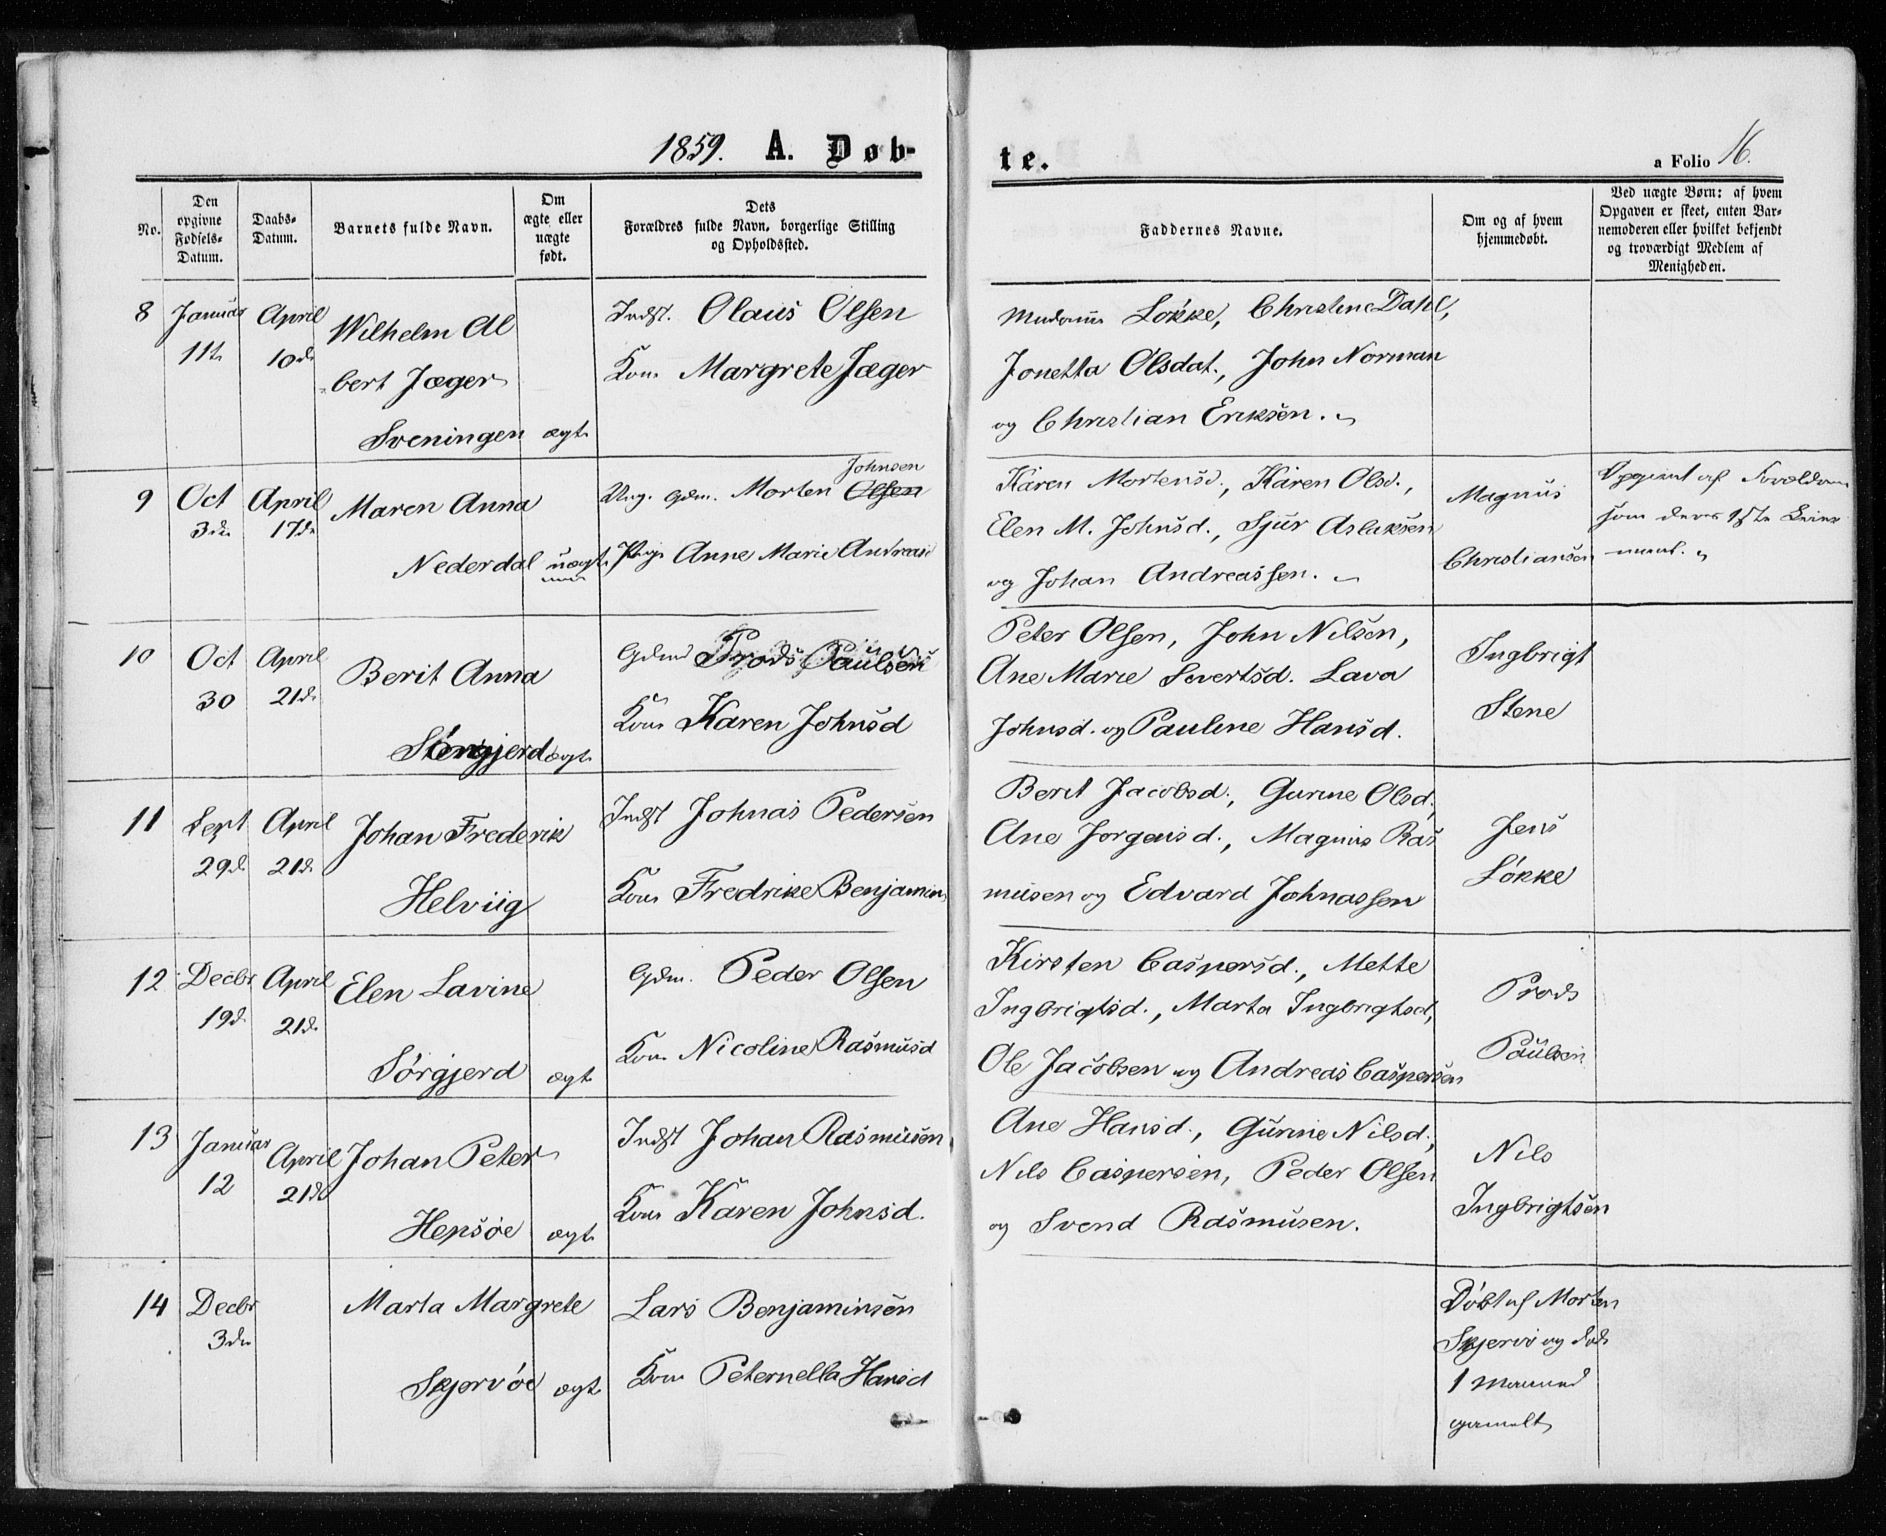 1859. A. Døb-
te.
a Folio 16.
No.
Den
opgivne
Fødsels-
Datum.
Daabs-
Datum.
Barnets fulde Navn.
Om
ægte eller
uægte
født.
Dets
Forældres fulde Navn, borgerlige Stilling
og Opholdssted.
Faddernes Navne.
Om og af hvem
hjemmedøbt.
Ved uægte Børn: af hvem
Opgaven er skeet, enten Bar-
nemoderen eller hvilket bekjendt
og troværdigt Medlem af
Menigheden.
8 Januar April
11te 10de
Wilhelm Al
bert Jæger
Sveningen ægte
Indst. Olaus Olsen
Kone Margrete Jæger
Madame Løkke, Christine Dahl,
Jonetta Olsdat., John Norman
og Christian Eriksen.
9 Oct April
3die 17de
Maren Anna
Nederdal uægte
Johnsen
Ung. Gdm. Morten Olsen
Pige Anne Marie Andreasd
Karen Mortensd., Karen Olsd.,
Elen M. Johnsd., Sjur Aslaksen
og Johan Andreassen.
Magnus
Christiansen
Opgivet af Forældrene
som deres 1ste Leier
maal.
10 Oct April
30 21de
Berit Anna
Stengjerd ægte
Gdmd Prods Paulsen
Kone Karen Johnsd
Peter Olsen, John Nilsen,
Ane Marie Sivertsd. Lava
Johnsd. og Pauline Hansd.
Ingbrigt
Stene
11 Sept April
29de 21de
Johan Frederik
Helviig
Indst Johnas Pedersen
Kone Fredrike Benjamins
Berit Jacobsd., Gurine Olsd,
Ane Jørgensd., Magnus Ras
musen og Edvard Johnassen
Jens
Løkke
12 Decbr April
19de 21de
Elen Lavine
Sørgjerd ægte
Gdm. Peder Olsen
Kone Nicoline Rasmusd
Kirsten Caspersd., Mette
Ingbrigtsd., Marta Ingbrigtsd,
Ole Jacobsen og Andreas Caspersen
Prods
Paulsen
13 Januar April
12 21de
Johan Peter
Hepsøe ægte
Indst Johan Rasmusen
Kone Karen Johnsd.
Ane Hansd., Gurine Nilsd.,
Nils Caspersen, Peder Olsen
og Svend Rasmusen.
Nils
Ingbrigtsen
14 Decbr
3die
Marta Margrete
Skjervøe ægte
Lars Benjaminsen
Kone Peternella Hansd
Døbt af Morten
Skjervø og død
1 Maaned
gammelt